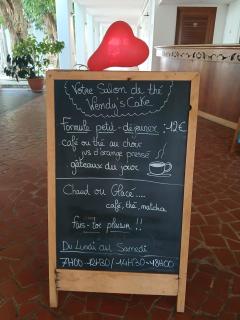 Votre Salon de thé
Wendy's Cake
Formule petit-déjeuner :-12€
café ou thé au choix
jus d'orange pressé
gâteaux du jour
Chaud ou Glacé....
café, thé, matcha
fais-toi plaisir !!
Du Lundi au Samedi
7H00-12H30/14H30-18H00